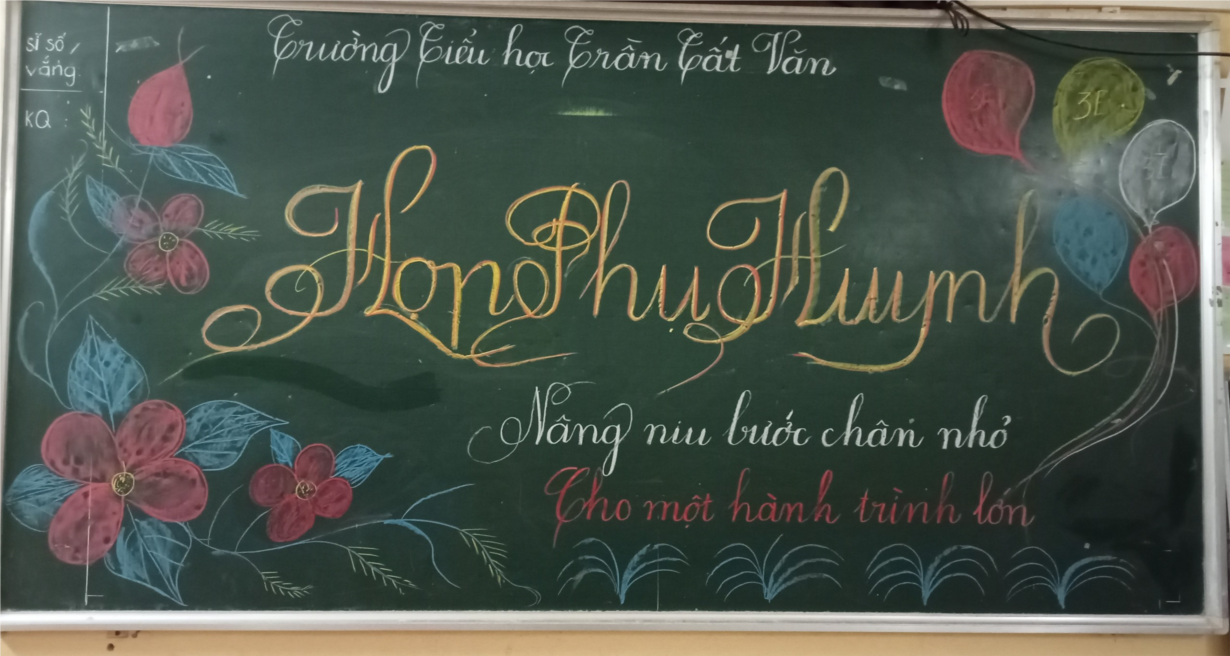 sĩ số,
vắng.
KQ :
Trường Tiểu học Trần Tất Văn
3E
Họp Phụ Huynh
Nâng niu bước chân nhỏ
Cho một hành trình lớn